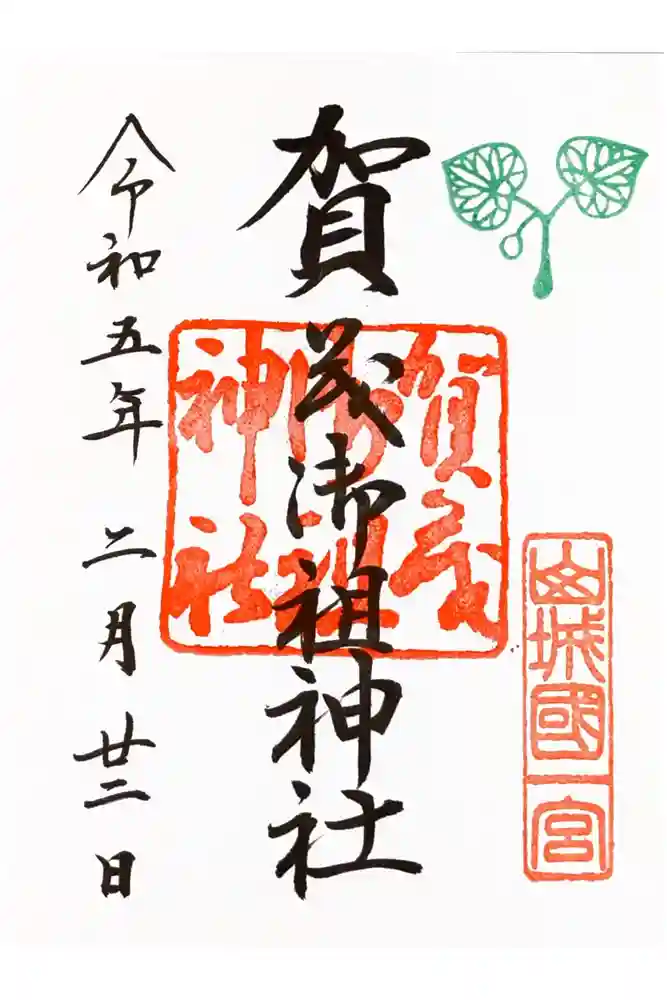 山城國一宮
賀茂御祖神社
賀茂
御祖
神社
令和五年 二月 廿二日